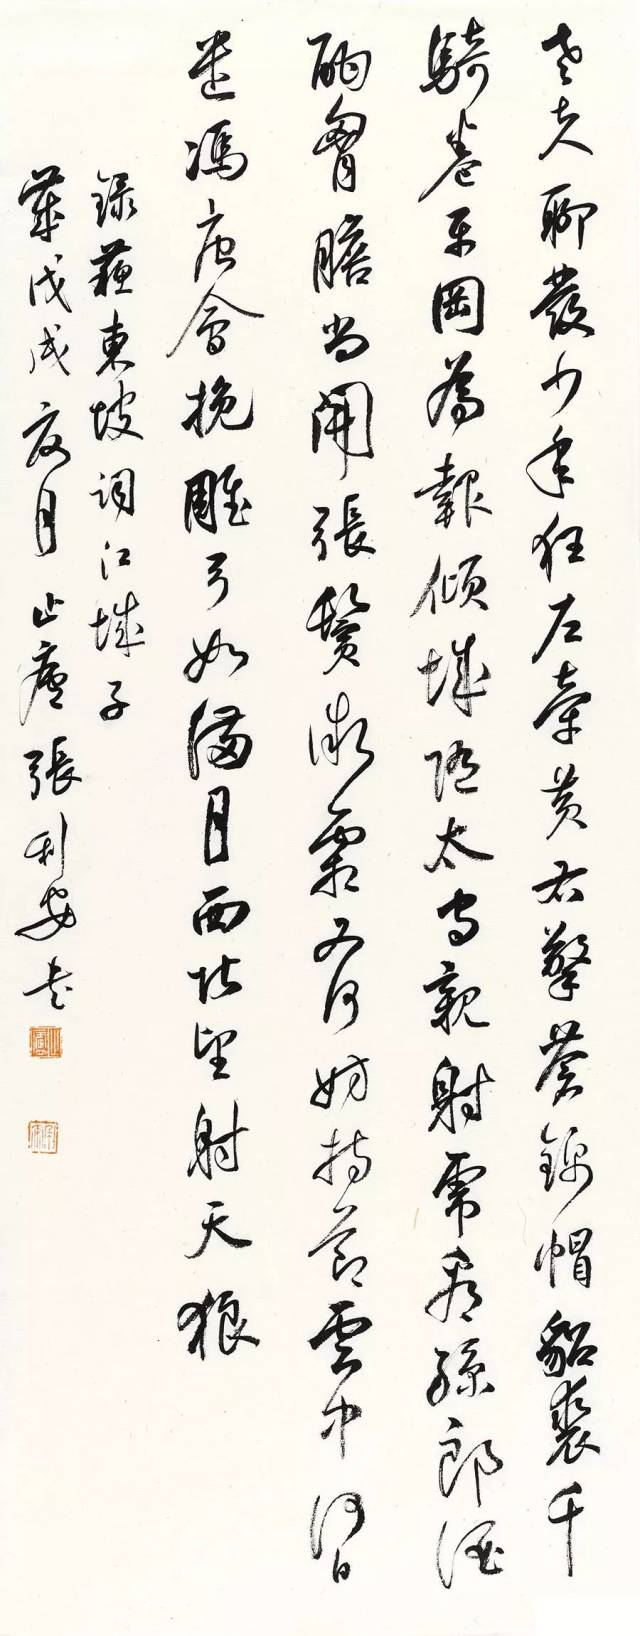 老夫聊發少年狂左牽黄右擎蒼錦帽貂裘千
騎卷平岡為報傾城隨太守親射虎看孫郎酒
酣胷膽尚開張鬢微霜又何妨持節雲中何日
遣馮唐會挽雕弓如滿月西北望射天狼
錄蘇東坡詞江城子
歲戊戌夏月止廬張利安書